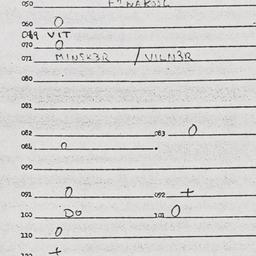 050
060 O
069 VIT
070 O
071 MINSK3R / VILN3R
080
081
082 083 O
084 O .
090
091 O 092 +
100 DO 101 O
110 O
+